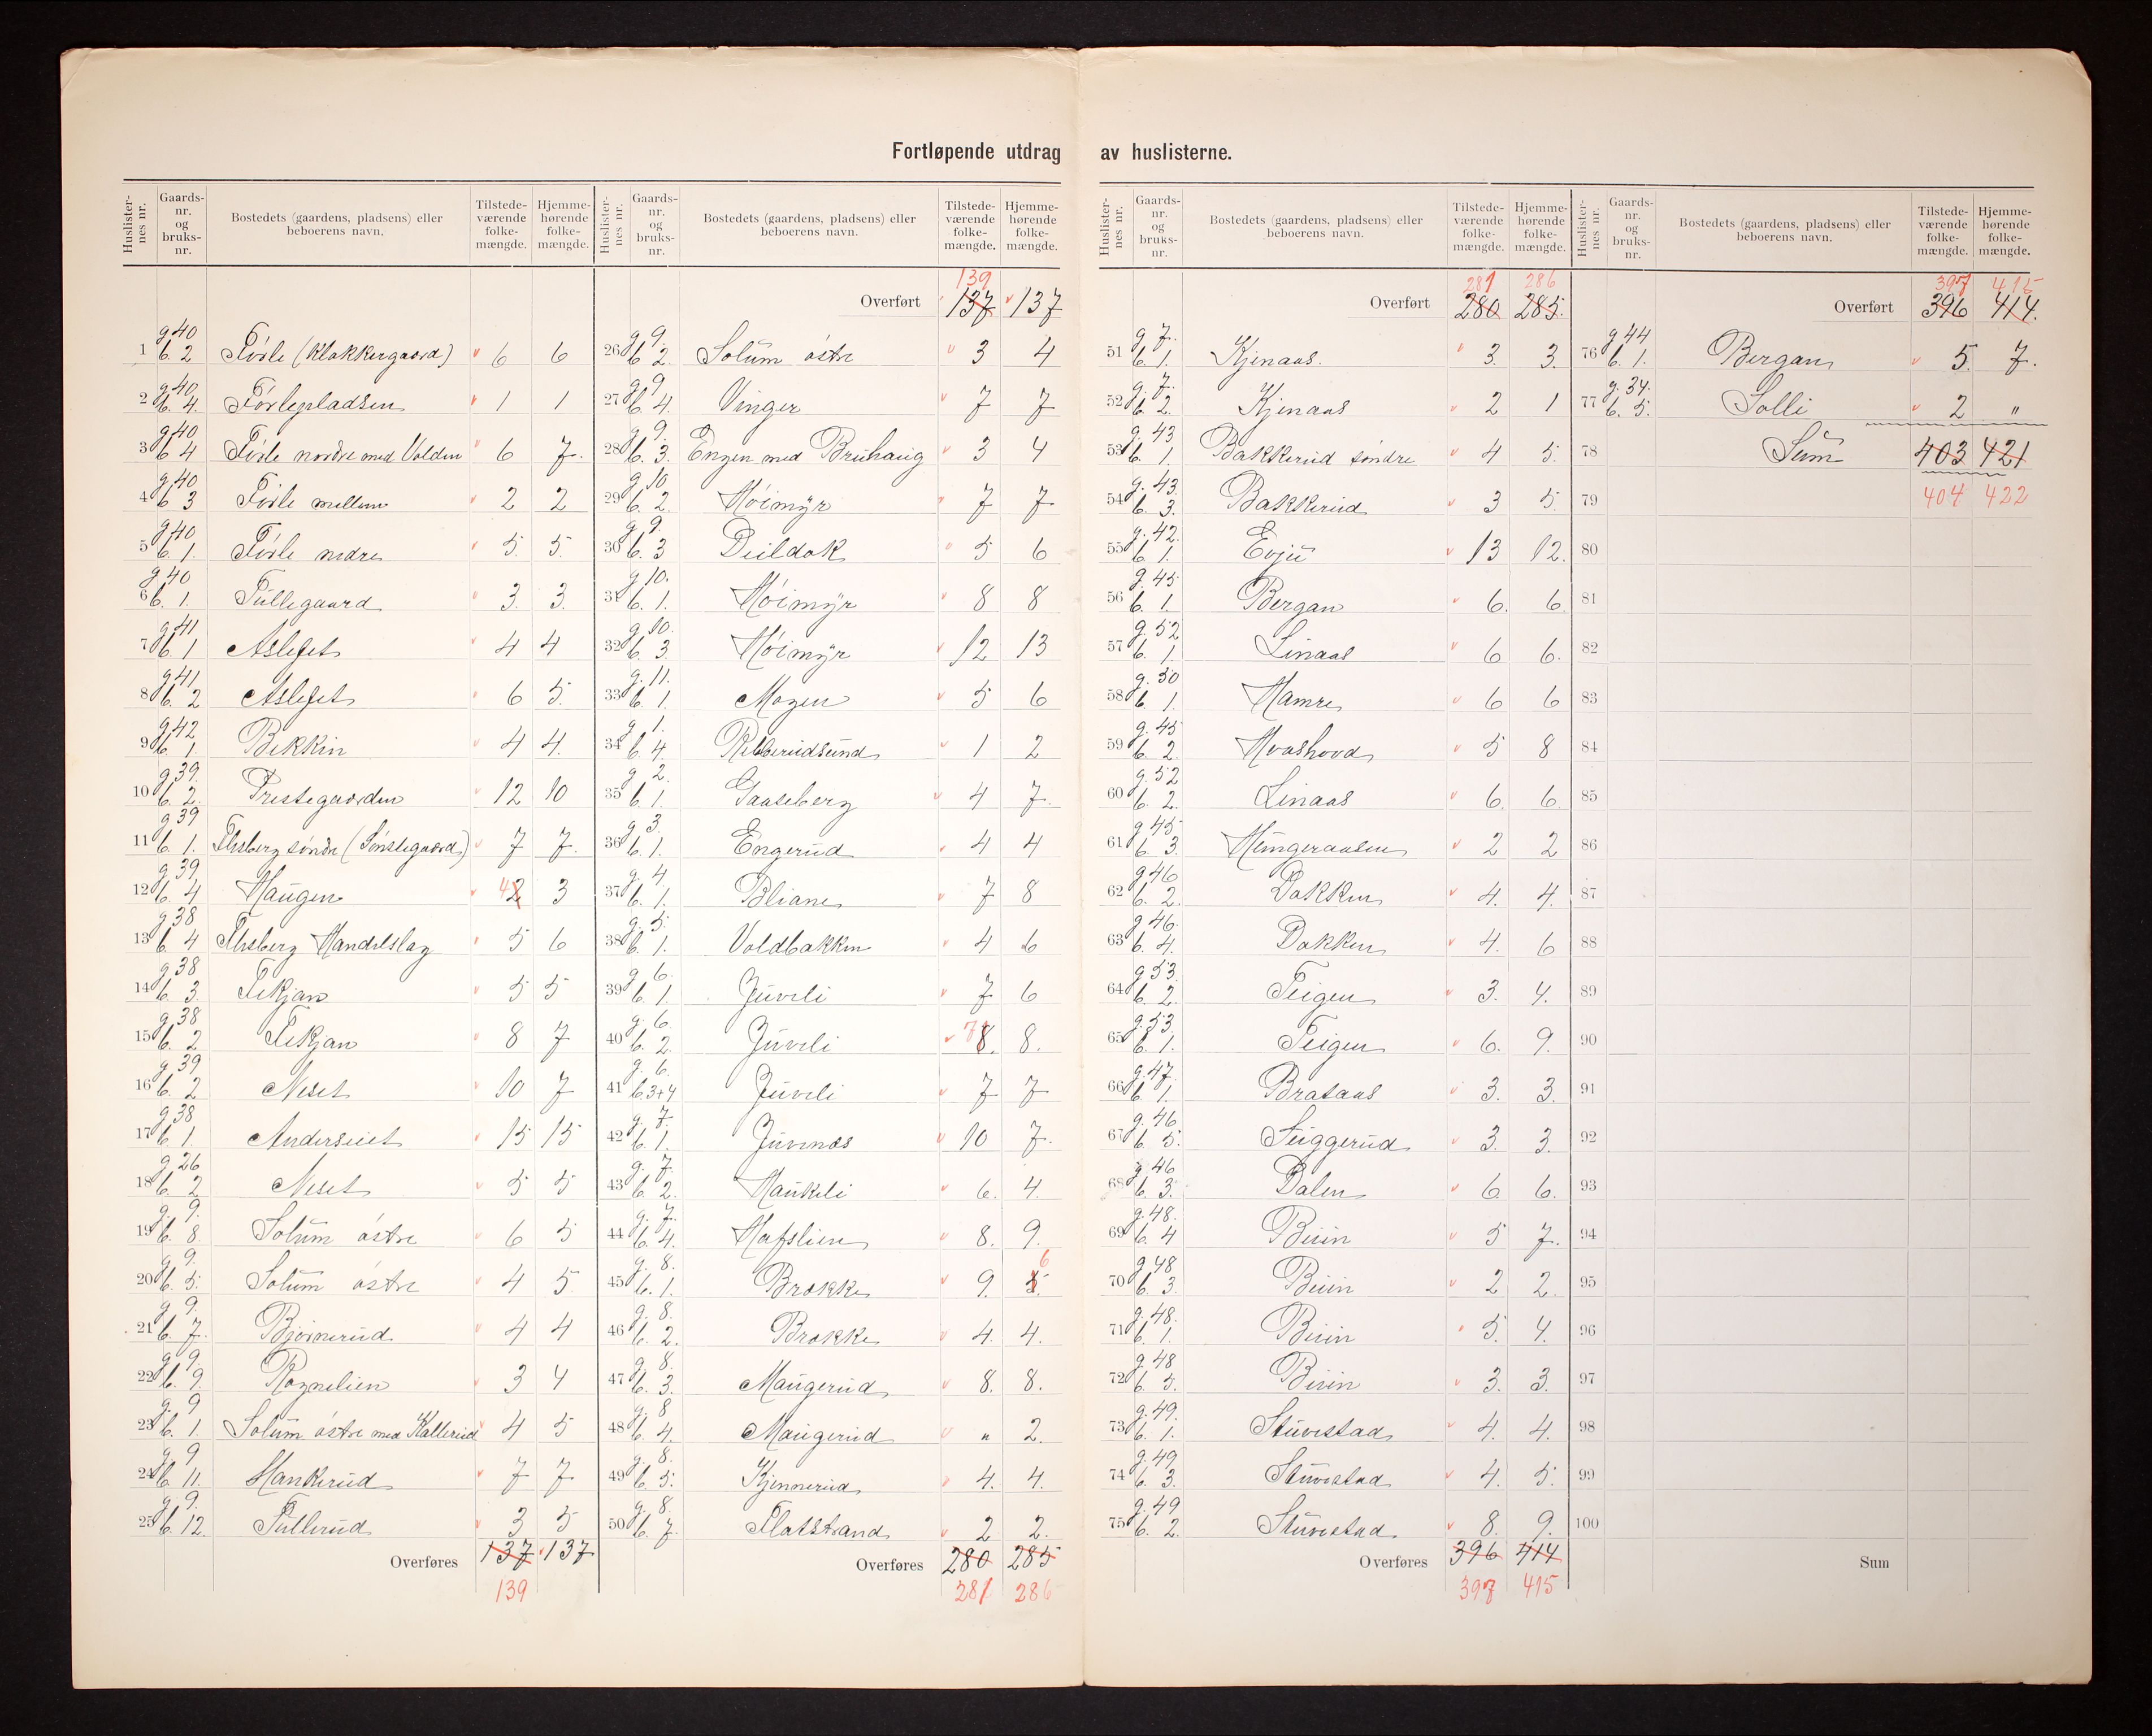 Fortløpende utdrag av huslisterne.
Huslisternes nr. Gaardsnr. og bruksnr. Bostedets (gaardens, pladsens) eller beboerens navn. Tilstedeværende folkemængde. Hjemmehørende folkemængde.
1 g 40 b. 2 Førle (Klokkergaard) 6 6
2 g 40 b. 4. Førlepladsen 1 1
3 g 40 b 4 Førle nordre med Volden 6 7.
4 g 40 b 3 Førle mellem 2 2
5 g 40 b. 1. Førle nedre 5. 5.
6 g 40 b. 1. Tüllegaard 3. 3.
7 g 41 b. 1 Aslefet 4 4
8 g 41. b. 2 Aslefet 6 5.
9 g 42 b. 1. Bekkin 4 4.
10 g 39. b. 2. Prestegaarden 12 10
11 g 39 b. 1. Flesberg söndre (Sönstegaard) 7 7.
12 g 39, b. 4 Haugen 4 2 3
13 g 38 b. 4 Flesberg Handelslag 5 6
14 g 38 b. 3. Tekjan 5 5
15 g. 38 b. 2 Tekjan 8 7
16 g 39 b. 2 Neset 10 7
17 g 38 b. 1. Anderseiet 15 15
18 g 26 b. 2 Neset 5 5
19 g. 9. b. 8. Solum östre 6 5
20 g 9. b. 5. Solum östre 4 5.
21 g 9. b. 7. Bjørnerud 4 4
22 g. 9. b. 9. Rognelien 3 4
23 g. 9 b. 1. Solum östre med Kallerud 4 5
24 g 9 b. 11. Hankerud 7 7
25 g 9. b. 12. Tüllerud 3 5
Overføres 137 137
139
Huslisternes nr. Gaardsnr. og bruksnr. Bostedets (gaardens, pladsens) eller beboerens navn. Tilstedeværende folkemængde. Hjemmehørende folkemængde.
139
Overført 137 137
26 g 9. b 2. Solum östre 3 4
27 g. 9 b. 4. Vinger 7 7
28 g 9. b. 3. Engen med Bruhaug 3 4
29 g 10 b. 2. Høimyr 7 7
30 g 9. b. 3 Deildok 5 6
31 g 10. b. 1. Høimyr 8 8
32 g 10. b. 3. Høimyr 12 13
33 g. 11. b. 1. Mogen 5 6
34 g 1. b. 4. Rebberudsund 1 2
35 g 2. b. 1. Gaaseberg 4 7.
36 g 3. b. 1. Engerud 4 4
37 g. 4 b. 1. Bliane 7 8
38 g. 5. b. 1. Voldbakken 4 6
39 g 6. b. 1. Juveli 7 6
40 g. 6. b. 2. Juveli 7 8. 8.
41 g. 6. b. 3+4 Juveli 7 7
42 g. 7. b. 1. Juvenæs 10 7.
43 g. 7. b. 2. Haukeli 6. 4.
44 g. 7. b. 4. Hafslien 8. 9.
45 g. 8. b. 1. Brække 9. 5. 6
46 g. 8. b. 2. Brække 4. 4.
47 g. 8. b. 3. Haugerud 8. 8.
48 g. 8 b. 4. Haugerud " 2.
49 g. 8. b. 5. Kjennerud 4. 4.
50 g. 8. b. 7. Flatstrand 2 2.
Overføres 280 285
281 286
Huslisternes nr. Gaardsnr. og bruksnr. Bostedets (gaardens, pladsens) eller beboerens navn. Tilstedeværende folkemængde. Hjemmehørende folkemængde.
281 286
Overført 280 285.
51 g 7. b. 1. Kjenaas. 3. 3.
52 g. 7. b. 2. Kjenaas 2 1
53 g. 43 b. 1. Bakkerud søndre 4 5.
54 g. 43. b. 3. Bakkerud 3 5.
55 g. 42. b. 1. Evju 13 12.
56 g. 45 b. 1. Bergan 6. 6.
57 g. 52 b. 1. Linaas 6 6.
58 g. 50 b. 1. Hamre 6 6
59 g. 45 b. 2. Hvashovd 5 8
60 g. 52 b. 2. Linaas 6. 6.
61 g 45 b. 3. Hungeraasen 2 2
62 g 46 b. 2. Dokken 4. 4.
63 g 46. b. 4. Dokken 4. 6
64 g 53. b. 2. Teigen 3. 4.
65 g. 53. b. 1. Teigen 6. 9.
66 g. 47. b. 1. Brataas 3. 3.
67 g. 46 b. 5. Seiggerud 3. 3.
68 g. 46 b. 3. Dalen 6 6.
69 g. 48. b. 4 Buin 5 7.
70 g 48 b. 3. Buin 2 2.
71 g. 48. b. 1. Buin 5. 4.
72 g. 48 b. 5. Buin 3. 3.
73 g. 49. b. 1. Stuvestad 4. 4.
74 g. 49 b. 3. Stuvestad 4. 5.
75 g. 49 b. 2. Stuvestad. 8. 9.
Overføres 396 414
397 415
Huslisternes nr. Gaardsnr. og bruksnr. Bostedets (gaardens, pladsens) eller beboerens navn. Tilstedeværende folkemængde. Hjemmehørende folkemængde.
397 415
Overført 396 414.
76 g 44 b. 1. Bergan 5. 7.
77 g. 34. b. 5. Solli 2 "
78 Sum 403 421
79 404 422
80
81
82
83
84
85
86
87
88
89
90
91
92
93
94
95
96
97
98
99
100
Sum